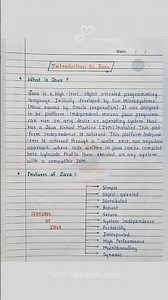 Date: / /
Introduction to Java
What is Java ?
Java is a high-level, object oriented programming
language initially developed by Sun Microsystems.
(Now owned by Oracle Corporation) It was designed
to be platform - independent, means java programs
can run on any device or operating system that
has a Java Virtual Machine (JVM) installed. This plat-
form independence is achieved
code written in java can be compiled
into bytecode that is then executed on any system
with a compatible JVM.
Features of Java :
Simple
Object - oriented
Distributed
Robust
Secure
System independence
Portability
Interpreted
High Performance
Multithreading
Dynamic
FEATURES
OF
JAVA